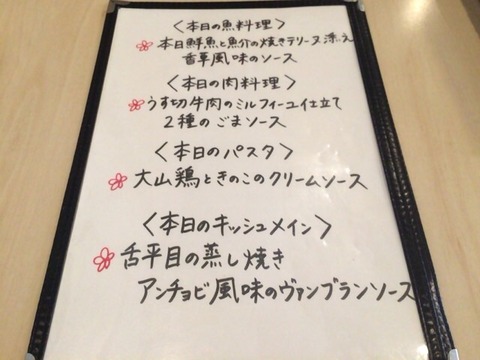 〈本日の魚料理〉
本日鮮魚と魚介の焼きテリーヌ添え
香草風味のソース
〈本日の肉料理〉
うす切牛肉のミルフィーユイ仕立て
2種のごまソース
〈本日のパスタ〉
大山鶏ときのこのクリームソース
〈本日のキッシュメイン〉
舌平目の蒸し焼き
アンチョビ風味のヴァンブランソース